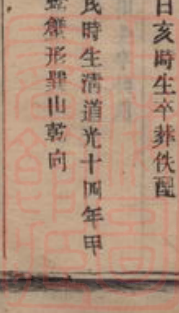 日亥時生卒葬佚配
氏時生清道光十四年甲
形巽山乾向